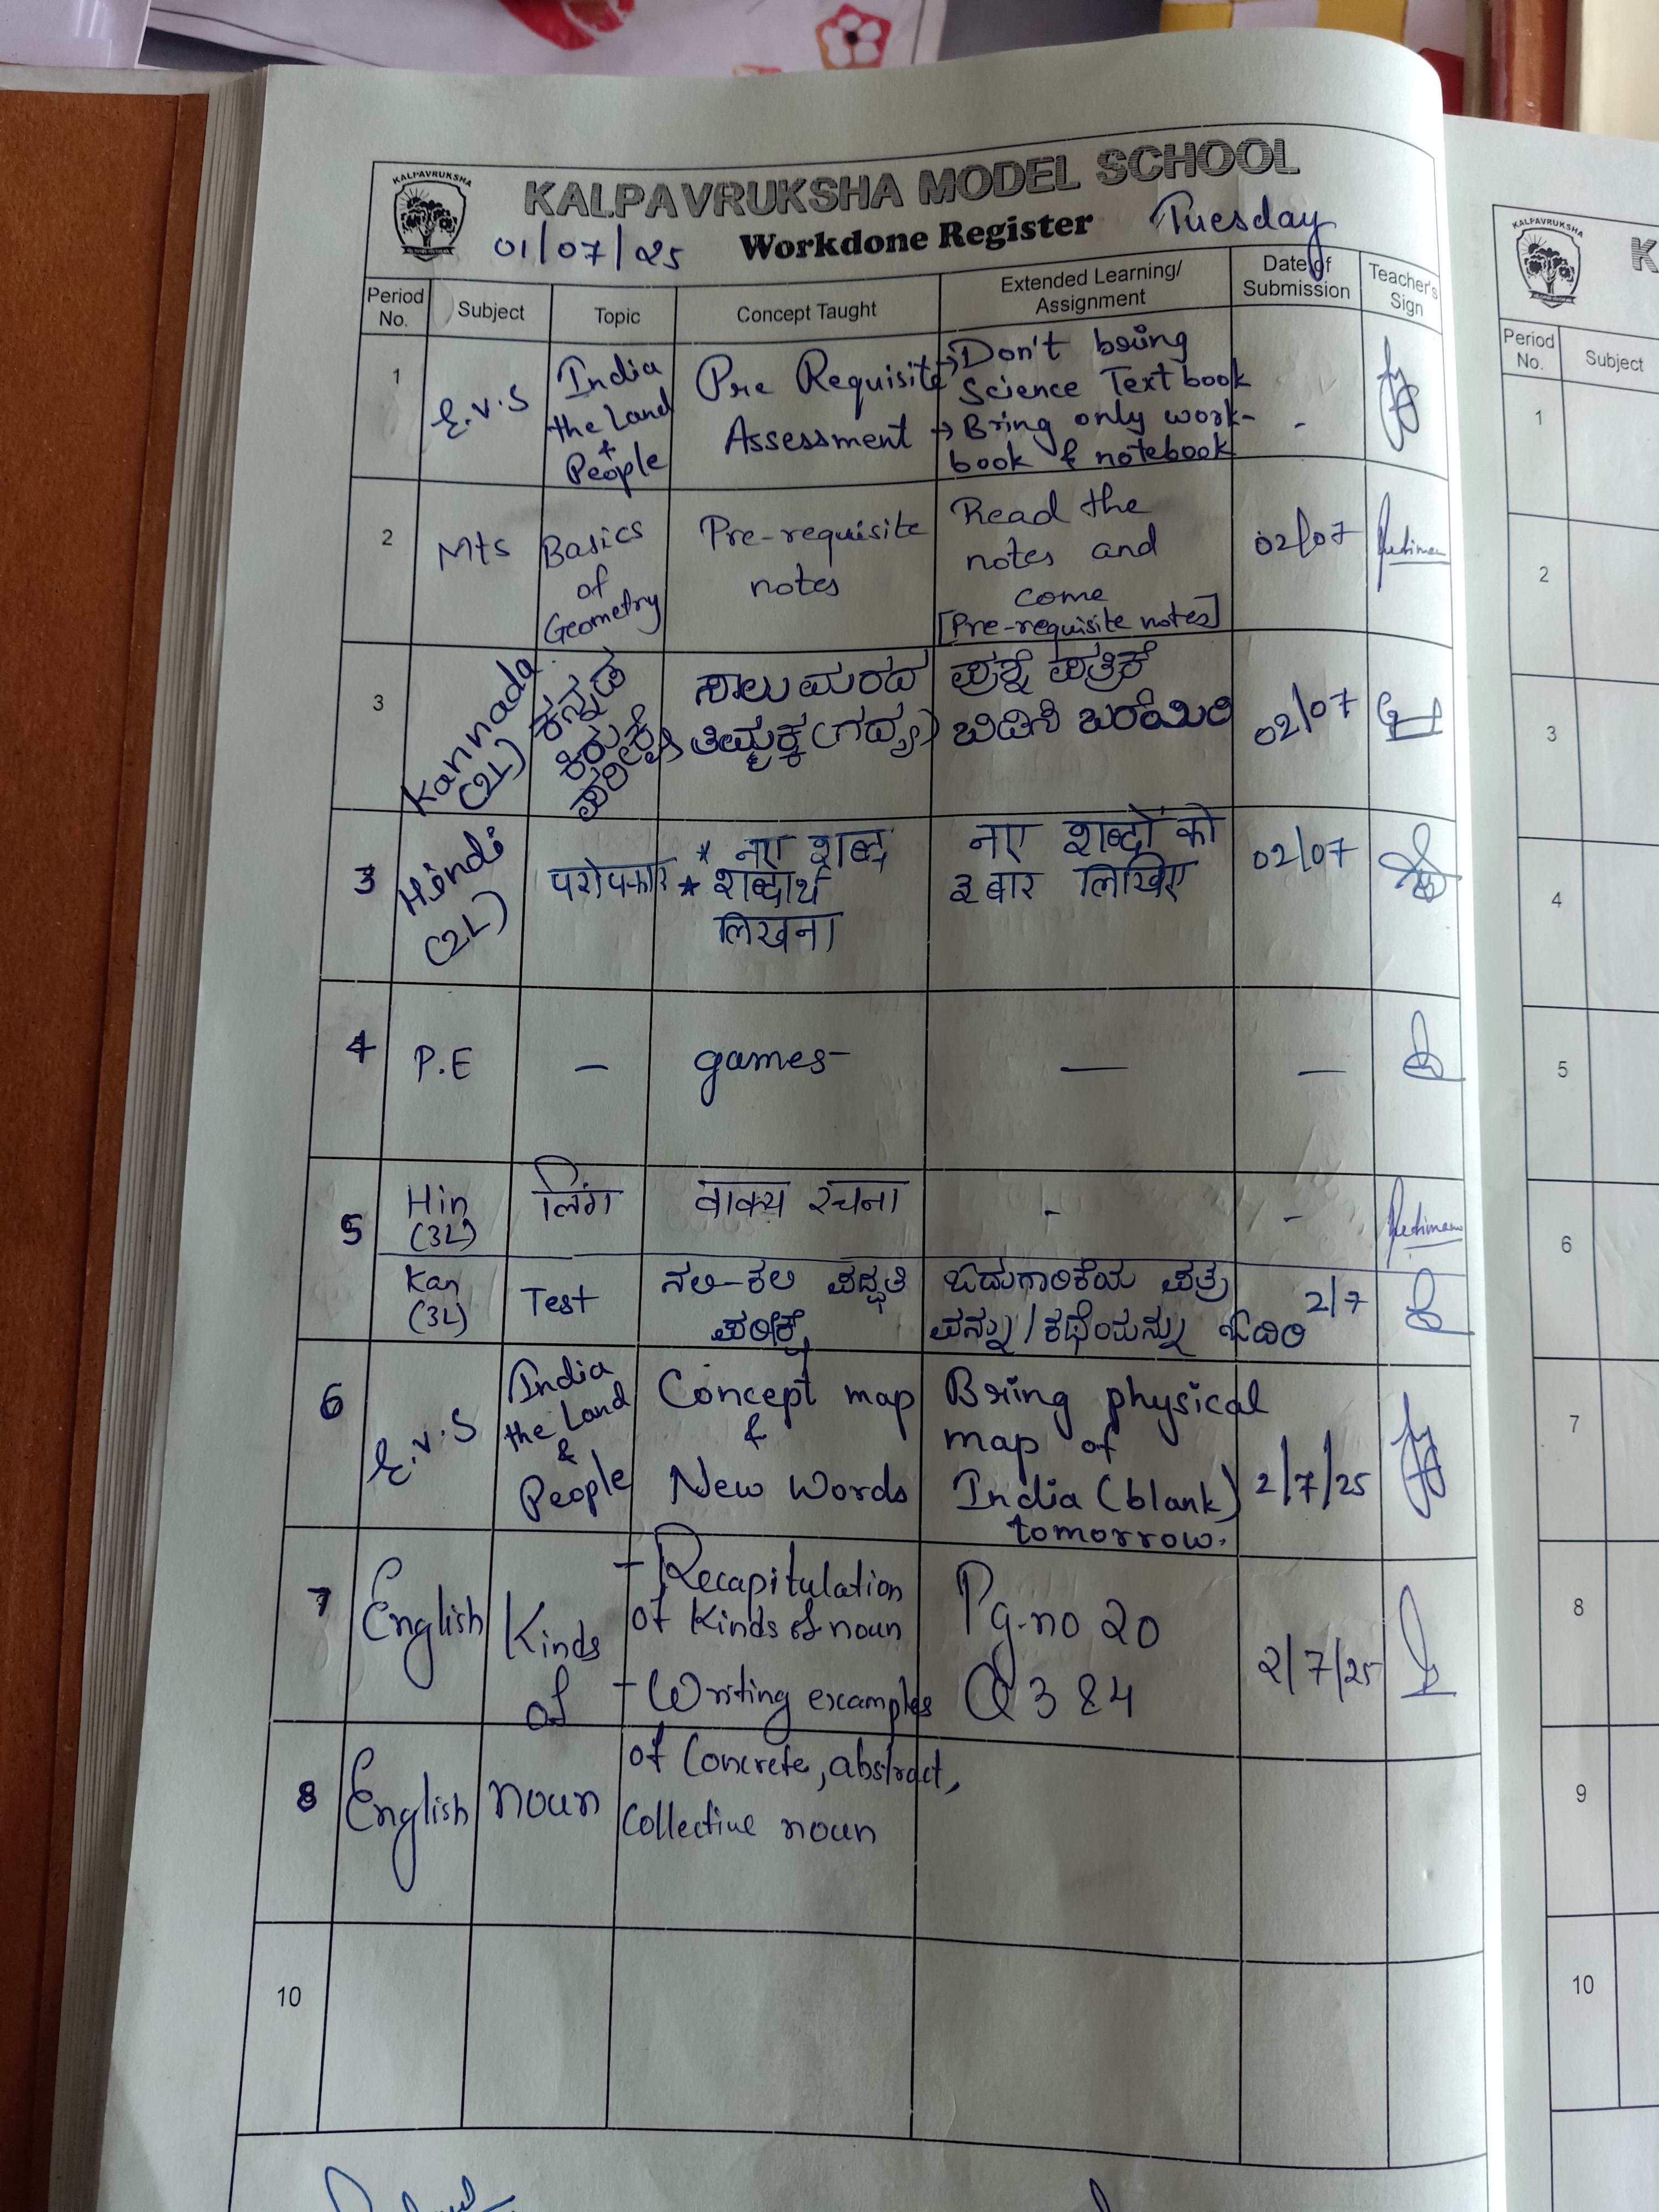 KALPAVRUKSHA
KALPAVRUKSHA MODEL SCHOOL
01/07/25 Workdone Register Tuesday
Period No. Subject Topic Concept Taught Extended Learning/ Assignment Date of Submission Teacher's Sign
1 E.V.S India the Land & People Pre Requisite Assessment → Don't bring Science Textbook → Bring only work-book & notebook -
2 Mts Basics of Geometry Pre-requisite notes Read the notes and come [Pre-requisite notes] 02/07
3 Kannada (2L) ಕನ್ನಡ ಕಿರು ಪರೀಕ್ಷೆ ಸಾಲುಮರದ ತಿಮ್ಮಕ್ಕ (ಗದ್ಯ) ಪ್ರಶ್ನೆ ಪತ್ರಿಕೆ ಬಿಡಿಸಿ ಬರೆಯಿರಿ 02/07
3 Hindi (2L) परोपकार * नए शब्द * शब्दार्थ लिखना नए शब्दों को 3 बार लिखिए 02/07
4 P.E — games- — —
5 Hin (3L) लिंग वाक्य रचना - -
Kan (3L) Test ನಲಿ-ಕಲಿ ಪದ್ಧತಿ ಪರೀಕ್ಷೆ ಓದುಗಾರಿಕೆಯ ಪತ್ರ ವನ್ನು/ಕಥೆಯನ್ನು ಓದಿರಿ 2/7
6 E.V.S India the Land & People Concept map & New Words Bring physical map of India (blank) tomorrow. 2/7/25
7 English Kinds of - Recapitulation of Kinds of noun - Writing examples Pg.no 20 Q 3 & 4 2/7/25
8 English noun of Concrete, abstract, Collective noun
10
KALPAVRUKSHA
K
Period No. Subject
1
2
3
4
5
6
7
8
9
10